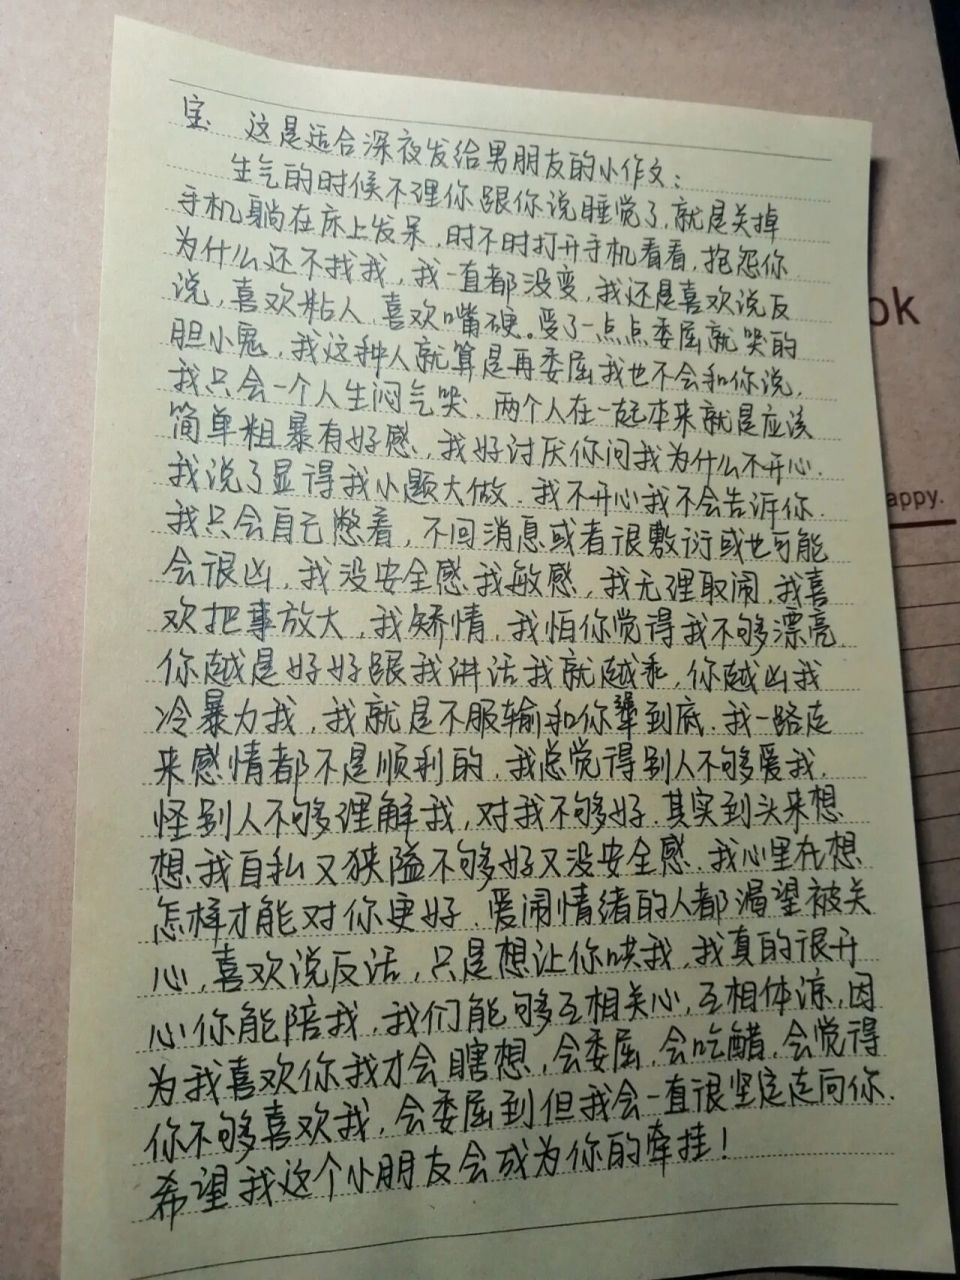 宝 这是适合深夜发给男朋友的小作文：
生气的时候不理你跟你说睡觉了，就是关掉
手机躺在床上发呆，时不时打开手机看看，抱怨你
为什么还不找我，我一直都没变，我还是喜欢说反
说，喜欢粘人，喜欢嘴硬。受了一点点委屈就哭的
胆小鬼，我这种人就算是再委屈我也不会和你说，
我只会一个人生闷气哭，两个人在一起本来就是应该
简单粗暴有好感，我好讨厌你问我为什么不开心，
我说了显得我小题大做，我不开心我不会告诉你，
我只会自己憋着，不回消息或者很敷衍或也可能
会很凶，我没安全感，我敏感，我无理取闹，我喜
欢把事放大，我矫情，我怕你觉得我不够漂亮，
你越是好好跟我讲话我就越乖，你越凶我
冷暴力我，我就是不服输和你犟到底，我一路走
来感情都不是顺利的，我总觉得别人不够爱我，
怪别人不够理解我，对我不够好，其实到头来想
想，我自私又狭隘不够好又没安全感，我心里在想
怎样才能对你更好，爱闹情绪的人都渴望被关
心，喜欢说反话，只是想让你哄我，我真的很开
心你能陪我，我们能够互相关心，互相体凉，因
为我喜欢你我才会瞎想，会委屈，会吃醋，会觉得
你不够喜欢我，会委屈到但我会一直很坚定走向你，
希望我这个小朋友会成为你的牵挂！
ok
appy.